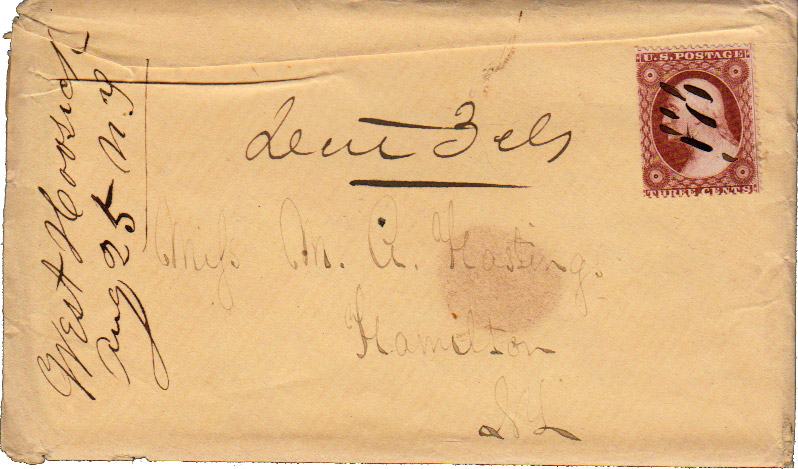 West Hoosick
Aug 25 N.Y
U.S. POSTAGE
THREE CENTS
Due 3 cts
Miss M. A. Hastings.
Hamilton
NY